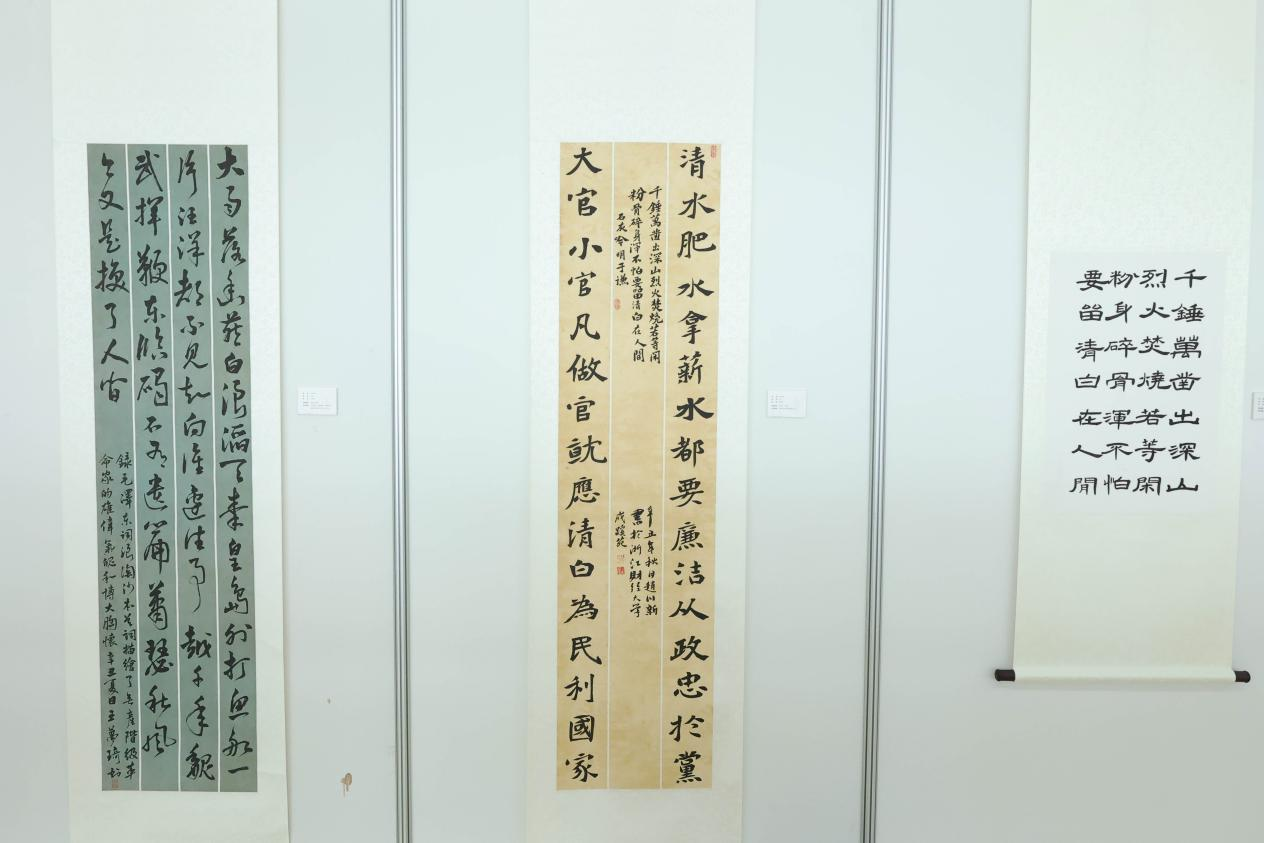 大雨落幽燕白浪滔天秦皇島外打魚船一
片汪洋都不見知向誰邊往事越千年魏
武揮鞭東臨碣石有遺篇蕭瑟秋風
今又是換了人间
錄毛澤東詞浪淘沙本首詞描繪了無產階級革
命家的雄偉氣魄和博大胸懷辛丑夏日王萬琦書
清水肥水拿薪水都要廉洁从政忠於黨
千錘萬凿出深山烈火焚燒若等閑
粉骨碎身渾不怕要留清白在人間
石灰吟明于謙
辛丑年秋日趙以新
書於浙江財經大学
成蹊苑
大官小官凡做官就應清白為民利國家
千錘萬凿出深山
烈火焚燒若等閑
粉身碎骨渾不怕
要留清白在人間